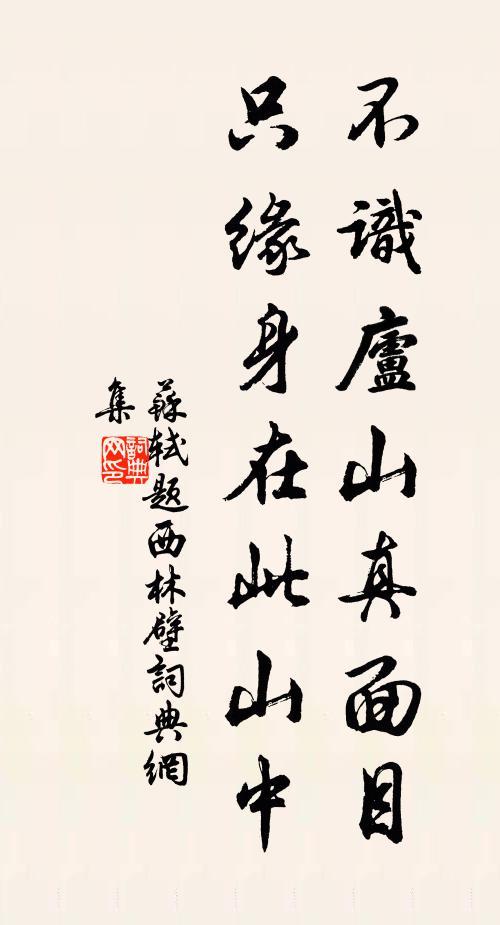 不識廬山真面目
只緣身在此山中
蘇軾題西林壁詞典網
集
詞典网印